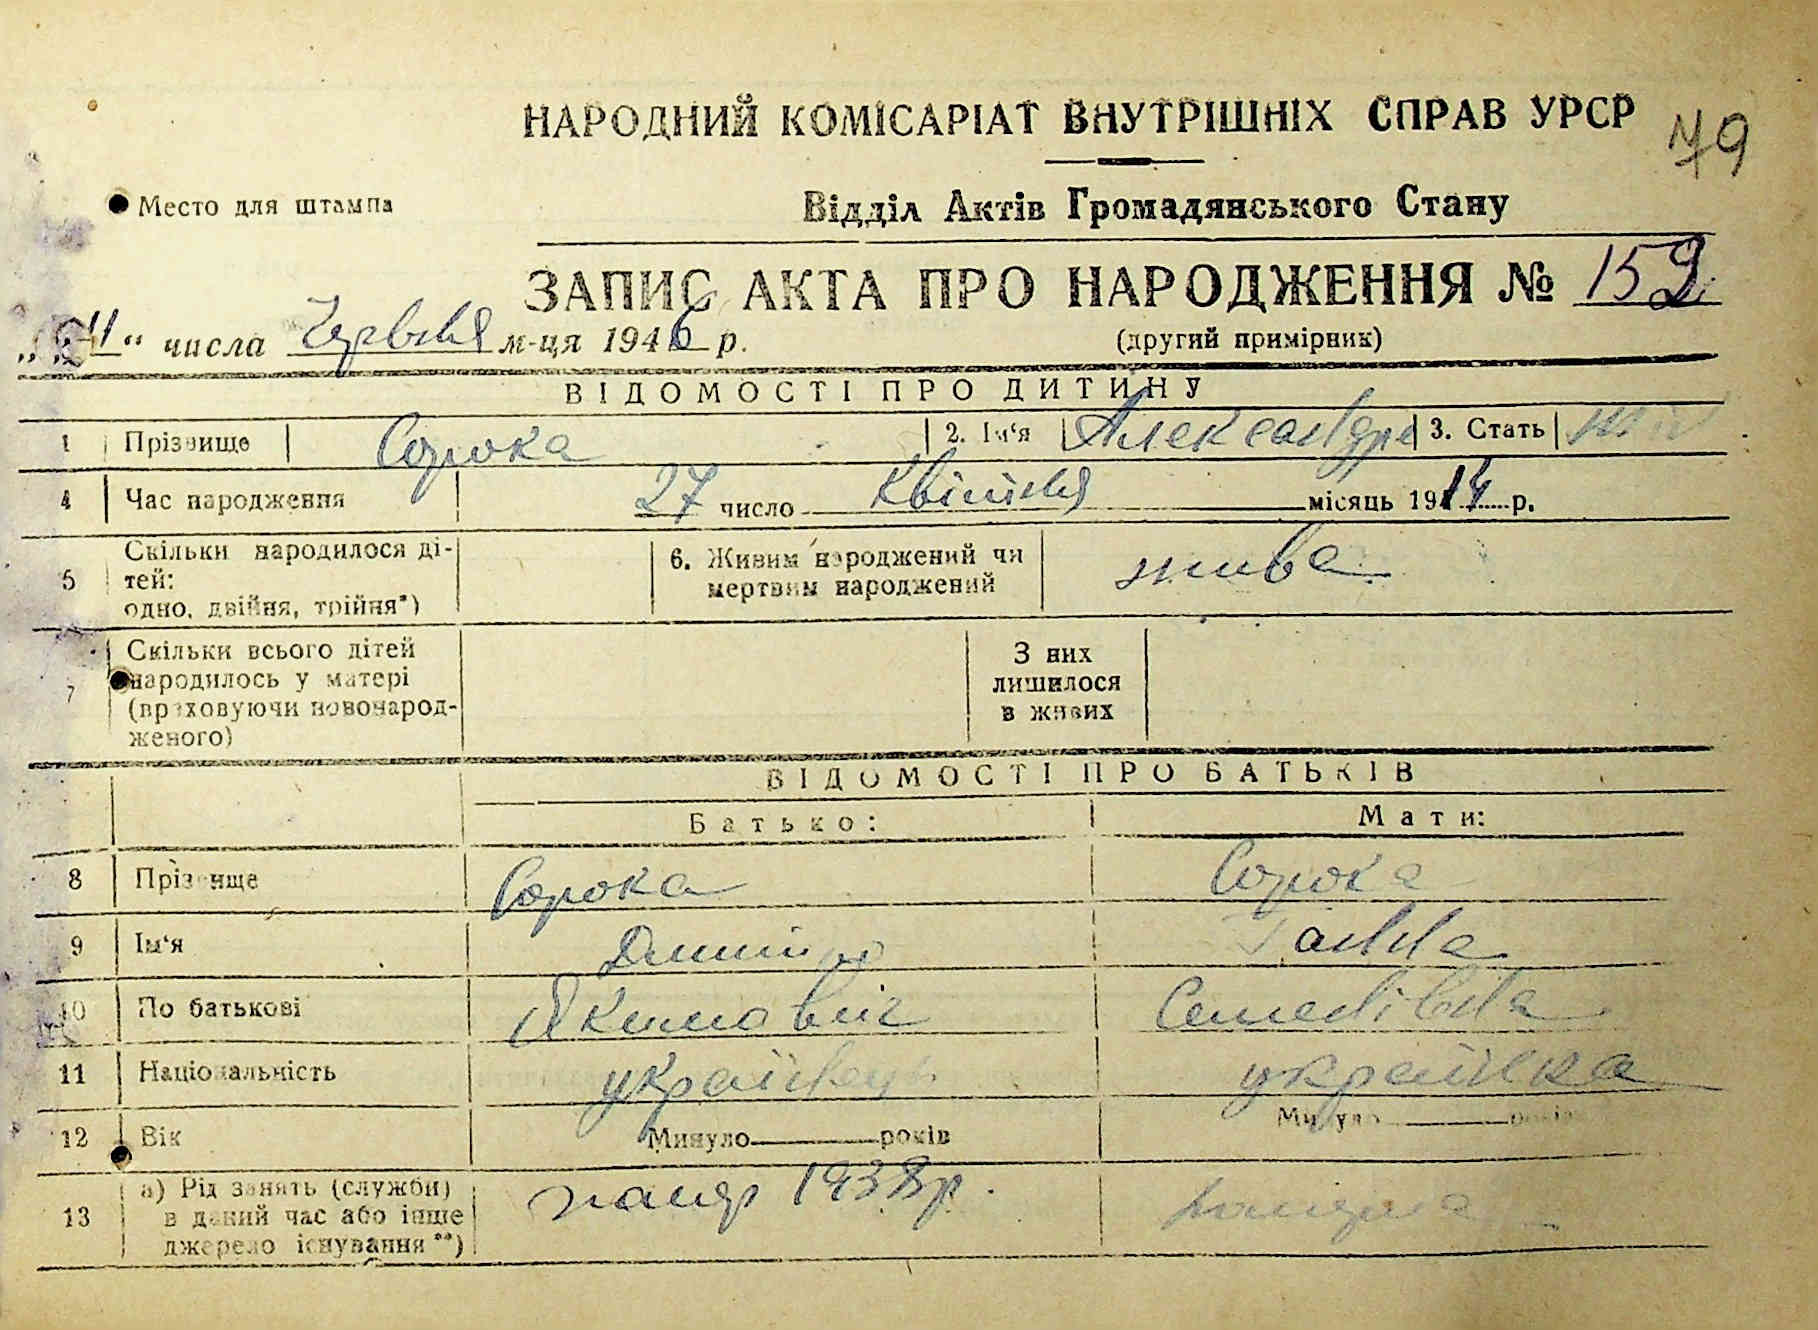 НАРОДНИЙ КОМІСАРІАТ ВНУТРІШНІХ СПРАВ УРСР
79
Место для штампа
Відділ Актів Громадянського Стану
ЗАПИС АКТА ПРО НАРОДЖЕННЯ № 159
„11“ числа Червня м-ця 1946 р.
(другий примірник)
ВІДОМОСТІ ПРО ДИТИНУ
1 Прізвище Сорока 2. Ім‘я Александра 3. Стать
4 Час народження 27 число Квітня місяць 1914 р.
5 Скільки народилося ді-
тей:
одно, двійня, трійня*)
6. Живим народжений чи
мертвим народжений
жива
7 Скільки всього дітей
народилось у матері
(враховуючи новонарод-
женого)
З них
лишилося
в живих
ВІДОМОСТІ ПРО БАТЬКІВ
Батько: Мати:
8 Прізвище Сорока Сорока
9 Ім‘я Дмитро Ганна
10 По батькові Якимович Семенівна
11 Національність українець українка
12 Вік Минуло років Минуло років
13 а) Рід занять (служби)
в даний час або інше
джерело існування**)
помер 1938р. померла